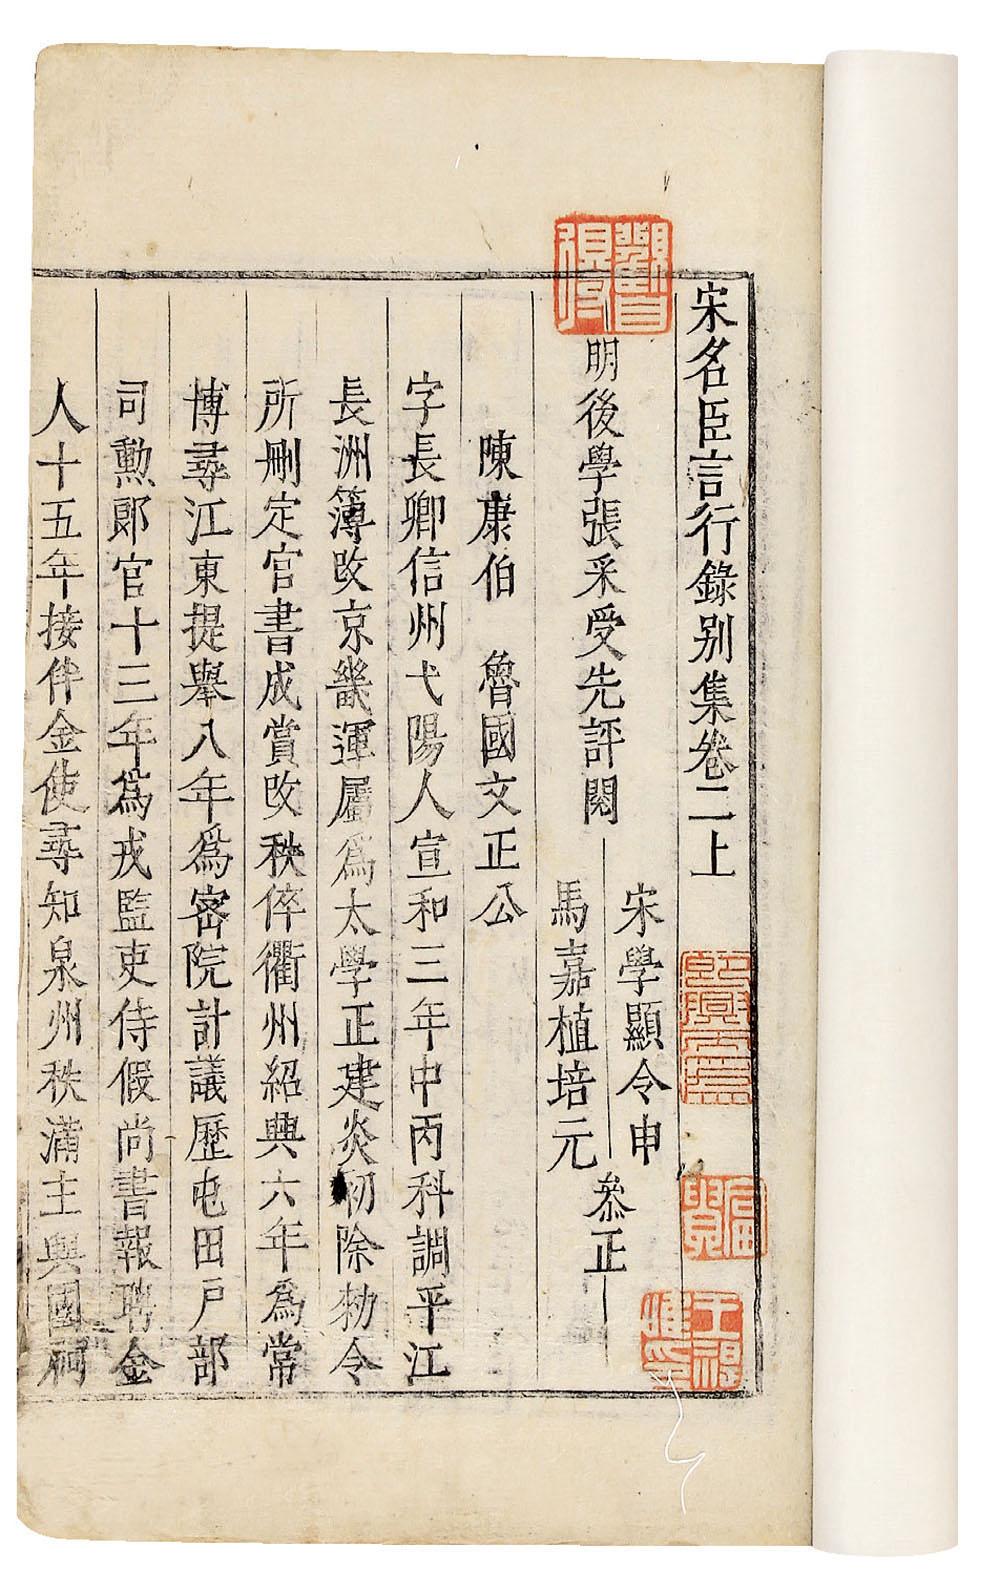 宋名臣言行錄别集卷二上
明後學張采受先評閱
宋學顯令申
馬嘉植培元
叅正
陳康伯　魯國文正公
字長卿信州弋陽人宣和三年中丙科調平江
長洲簿改京畿運屬爲太學正建炎初除勑令
所刪定官書成賞改秩倅衢州紹興六年爲常
博尋江東提舉八年爲密院計議歷屯田戶部
司勲郎官十三年爲戎監吏侍假尚書報聘金
人十五年接伴金使尋知泉州秩滿主興國祠